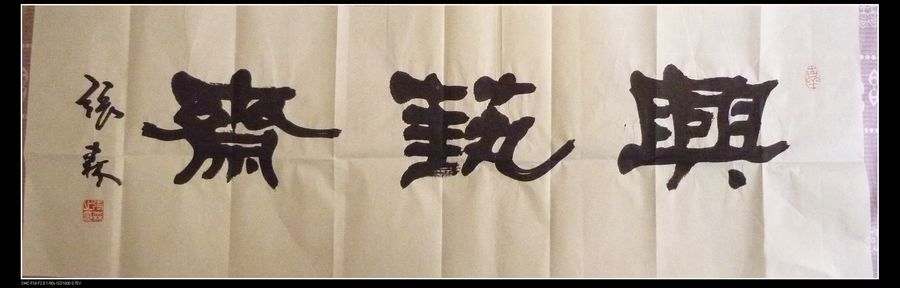 興藝齋
張森